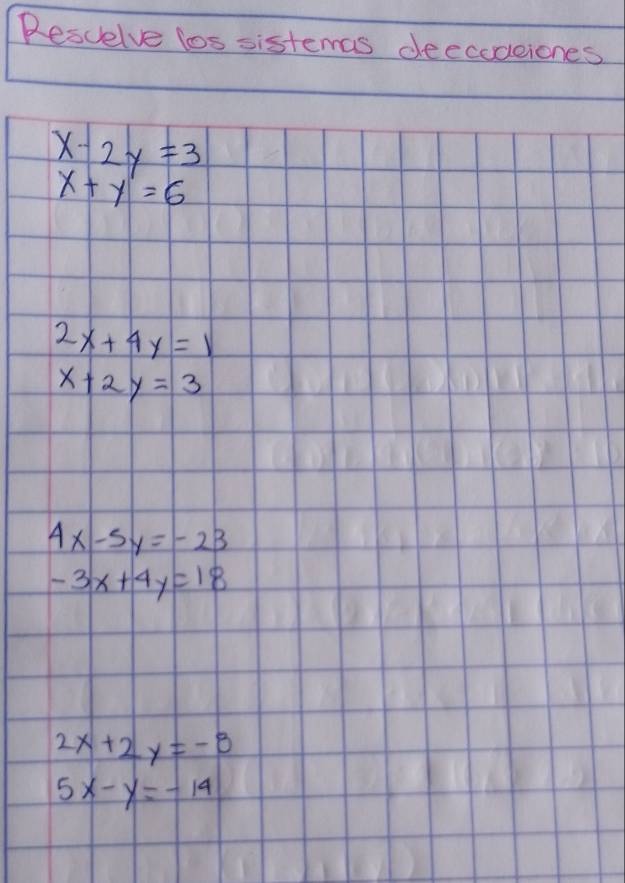 Resuelve los sistemas de ecuaciones
x - 2y = 3
x + y = 6
2x + 4y = 1
x + 2y = 3
4x - 5y = -23
-3x + 4y = 18
2x + 2y = -8
5x - y = -14